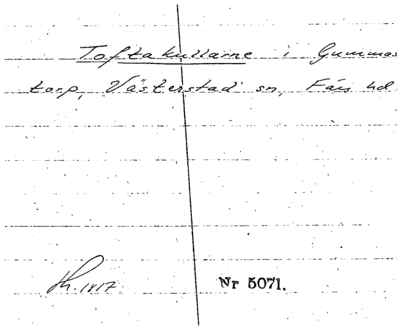 Toftakullarne i Gummas
torp, Västerstad sn, Färs hd
Nr 5071.